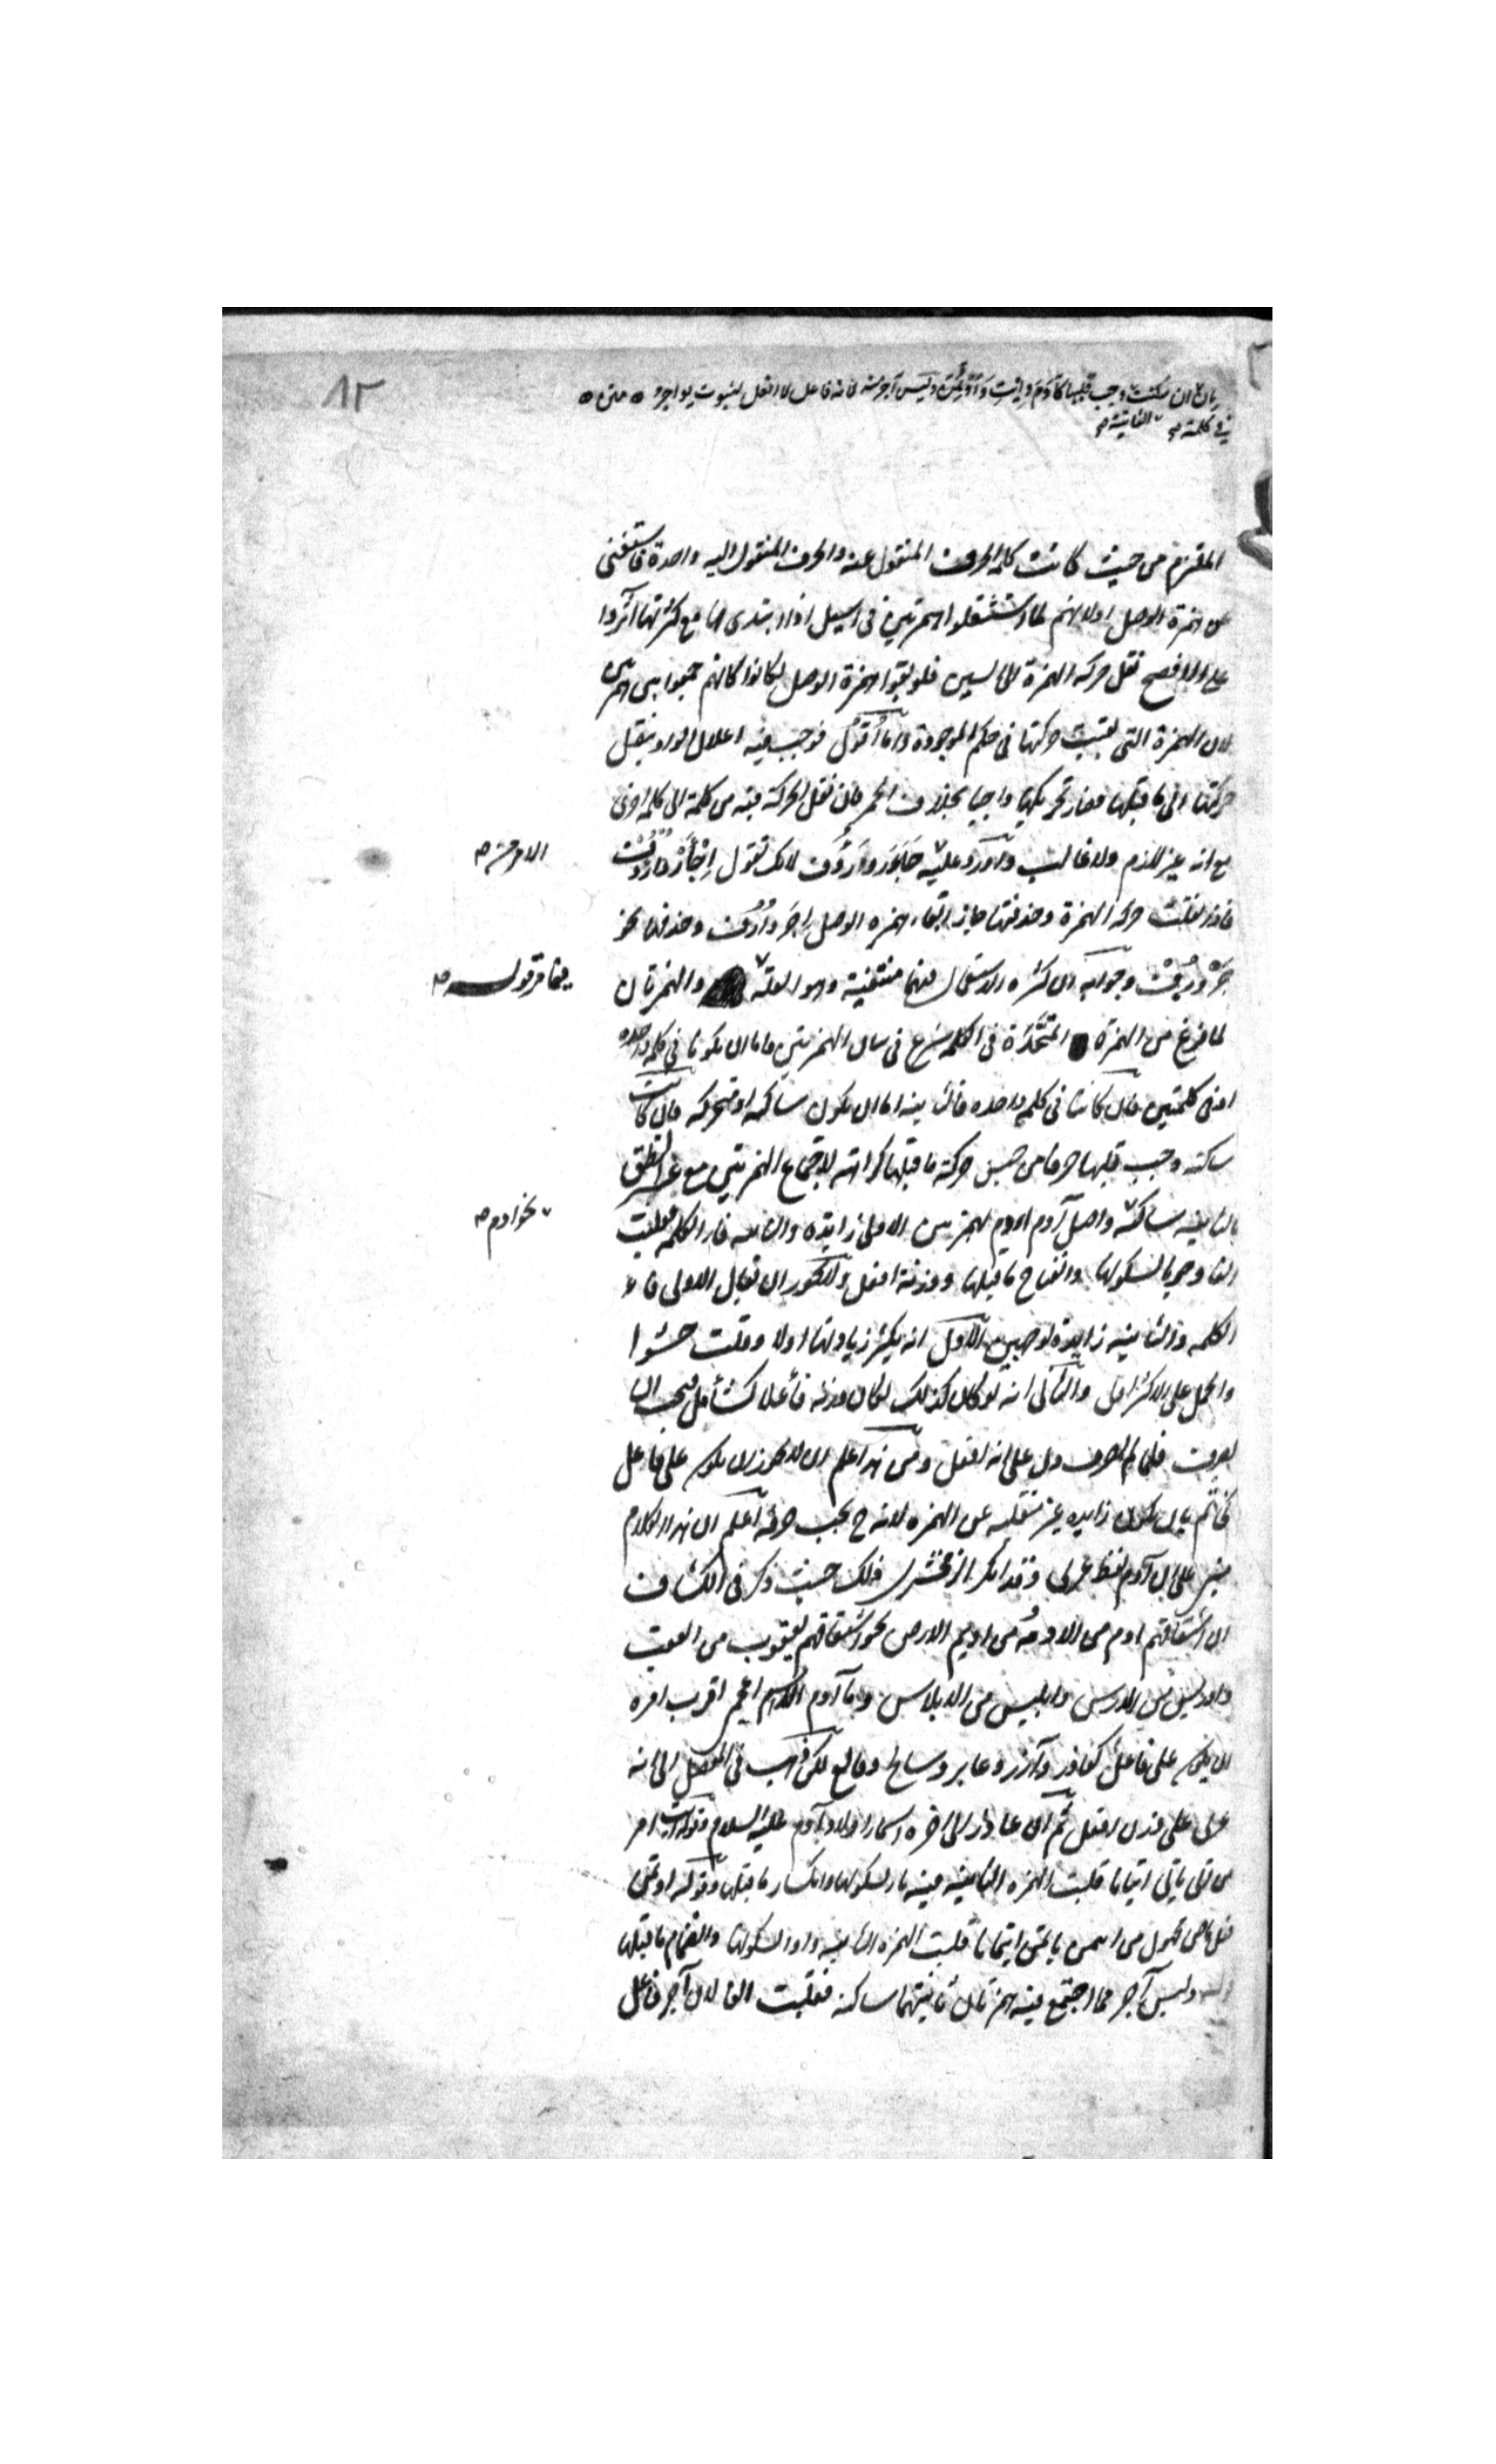 ٨٢
ان سكنت وجب قلبها كآدم وايت وأوتمن وليس آجر منه لانه فاعل لا افعل لثبوت يواجر متن
في كلمة الثانية
الملتزم من حيث كانت كلمة الحرف المنقول عنه والحرف المنقول اليه واحدة فاستغنى
عن همزة الوصل اولانهم لما استثقلوا الهمزتين في اسيل اذا ابتدى بها مع كثرتها آثروا
على الافصح نقل حركة الهمزة الى السين فلو بقوا همزة الوصل لكانوا كانهم جمعوا بين همزتين
لان الهمزة التي بقيت حركتها في حكم الموجودة واما اقول فوجب فيه اعلال الواو بنقل
حركتها الى ما قبلها فصار تحريكها واجبا بخلاف الحمر فان نقل الحركة فيه من كلمة الى كلمة اخرى
مع انه غير لازم ولا غالب واورد عليه جأر ورأف لانك تقول اجأر وارؤف
الامر منه
فاذا نقلت حركة الهمزة وحذفتها جاز ابقاء همزة الوصل اجر وارف وحذفها نحو
جر ورف وجوابه ان كثرة الاستعمال فيهما منتفية وهو العلة والهمزتان
فيما مر قوله
لما فرغ من الهمزة المتحدة في الكلمة شرع في بيان الهمزتين فاما ان يكونا في كلمة واحدة
او في كلمتين فان كانتا في كلمة واحدة فالثانية اما ان يكون ساكنة او متحركة فان كانت
ساكنة وجب قلبها حرفا من جنس حركة ما قبلها كراهة لاجتماع الهمزتين مع عسر النطق
بالثانية ساكنة واصل آدم اادم بهمزتين الاولى زايدة والثانية فاء الكلمة فقلبت
نحو ادم
الفا وجوبا لسكونها وانفتاح ما قبلها ووزنه افعل ولا يجوز ان يقال الاولى فاء
الكلمة والثانية زايدة لوجهين الاول انه يكثر زيادتها اولا وقلت حشوا
والحمل على الاكثر اولى والثاني انه لو كان كذلك لكان وزنه فأعلا كشأمل فيجب ان
يصرف فلما لم يصرف دل على انه افعل ومن هذا اعلم ان لا يجوز ان يكون على فاعل
كخاتم بان يكون زايدة غير منقلبة عن الهمزة لانه ح يجب صرفه اعلم ان هذا الكلام
مبني على ان آدم لفظ عربي وقد انكر الزمخشري ذلك حيث ذكر في الكشاف
ان اشتقاقهم ادم من الادمة ومن اديم الارض نحو اشتقاقهم يعقوب من العقب
وادريس من الدرس وابليس من الابلاس وما آدم الا اسم اعجمي اقرب امره
ان يكون على فاعل كعاذر وآزر وعابر وشالخ وفالغ لكن ذهب في المفصل الى انه
عربي على وزن افعل ثم ان عاذر الى اخره اسماء اولاد آدم عليه السلام وقوله ايت امر
من اتى ياتي اتيانا قلبت الهمزة الثانية فيه ياء لسكونها وانكسار ما قبلها وقوله اوتمن
فعل ماض مجهول من ايتمن ياتمن ايتمانا قلبت الهمزة الثانية واوا لسكونها وانضمام ما قبلها
وليس آجر مما اجتمع فيه همزتان ثانيتهما ساكنة فقلبت الفا لان آجر فاعل